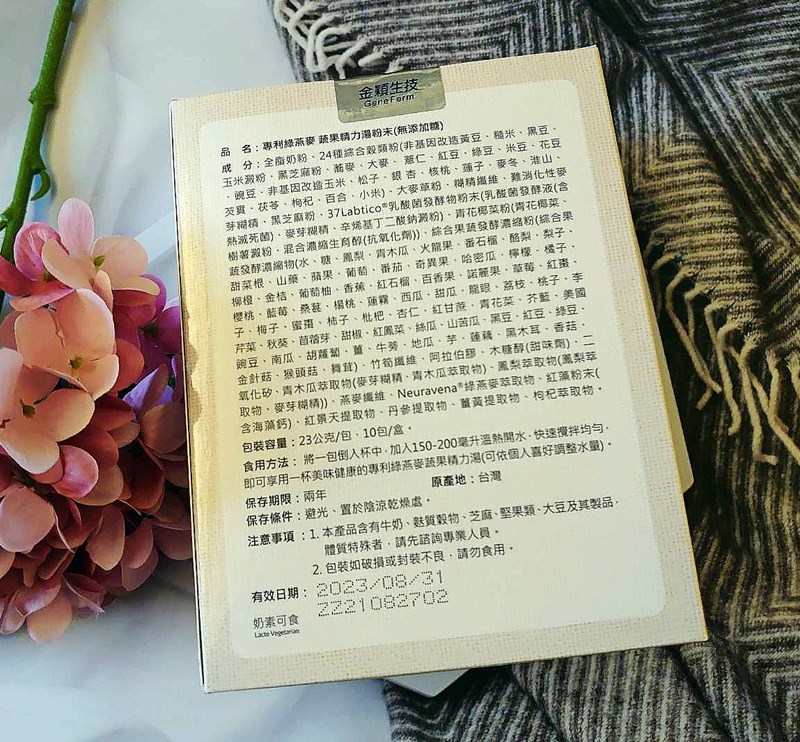 金穎生技
GeneFerm
品 名：專利綠燕麥 蔬果精力湯粉末(無添加糖)
成 分：全脂奶粉、24種綜合穀類粉(非基因改造黃豆、糙米、黑豆、
玉米澱粉、黑芝麻粉、蕎麥、大麥、薏仁、紅豆、綠豆、米豆、花豆
、豌豆、非基因改造玉米、松子、銀杏、核桃、蓮子、麥冬、淮山、
芡實、茯苓、枸杞、百合、小米)、大麥草粉、糊精纖維、難消化性麥
芽糊精、黑芝麻粉、37Labtico®乳酸菌發酵物粉末(乳酸菌發酵液(含
熱滅死菌)、麥芽糊精、辛烯基丁二酸鈉澱粉)、青花椰菜粉(青花椰菜、
樹薯澱粉、混合濃縮生育醇(抗氧化劑))、綜合果蔬發酵濃縮粉(綜合果
蔬發酵濃縮物(水、糖、鳳梨、青木瓜、火龍果、番石榴、酪梨、梨子、
甜菜根、山藥、蘋果、葡萄、番茄、奇異果、哈密瓜、檸檬、橘子、
柳橙、金桔、葡萄柚、香蕉、紅石榴、百香果、諾麗果、草莓、紅棗、
櫻桃、藍莓、桑葚、楊桃、蓮霧、西瓜、甜瓜、龍眼、荔枝、桃子、李
子、梅子、蜜棗、柿子、枇杷、杏仁、紅甘蔗、青花菜、芥藍、美國
芹菜、秋葵、苜蓿芽、甜椒、紅鳳菜、絲瓜、山苦瓜、黑豆、紅豆、綠豆、
豌豆、南瓜、胡蘿蔔、薑、牛蒡、地瓜、芋、蓮藕、黑木耳、香菇、
金針菇、猴頭菇、舞茸)、竹筍纖維、阿拉伯膠、木糖醇(甜味劑)、二
氧化矽、青木瓜萃取物(麥芽糊精、青木瓜萃取物)、鳳梨萃取物(鳳梨萃
取物、麥芽糊精))、燕麥纖維、Neuravena®綠燕麥萃取物、紅藻粉末(
含海藻鈣)、紅景天提取物、丹參提取物、薑黃提取物、枸杞萃取物。
包裝容量：23公克/包，10包/盒。
食用方法：將一包倒入杯中，加入150-200毫升溫熱開水，快速攪拌均勻，
即可享用一杯美味健康的專利綠燕麥蔬果精力湯(可依個人喜好調整水量)。
保存期限：兩年 原產地：台灣
保存條件：避光、置於陰涼乾燥處。
注意事項：1. 本產品含有牛奶、麩質穀物、芝麻、堅果類、大豆及其製品，
體質特殊者，請先諮詢專業人員。
2. 包裝如破損或封裝不良，請勿食用。
有效日期：2023/08/31
ZZ21082702
奶素可食
Lacto Vegetarian